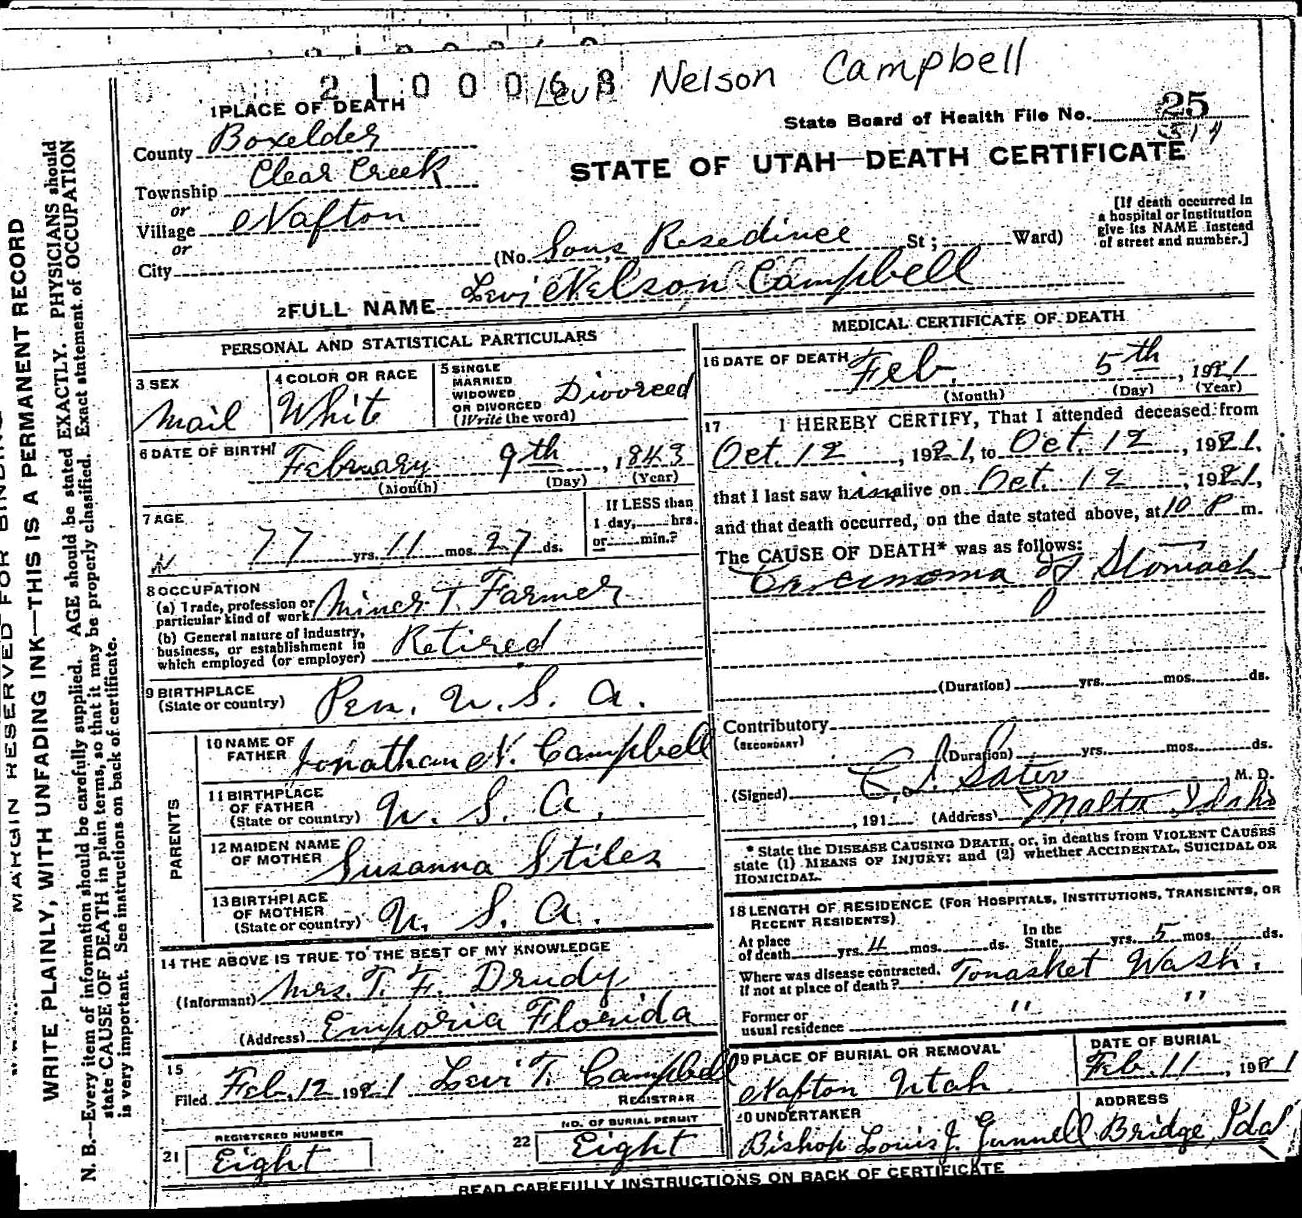 2100068
Levi Nelson Campbell
State Board of Health File No. 25
STATE OF UTAH—DEATH CERTIFICATE
1 PLACE OF DEATH
County Boxelder
Township Clear Creek
or
Village Nafton
or
City (No. Sons Resedince St; Ward)
[If death occurred in
a hospital or institution
give its NAME instead
of street and number.]
2 FULL NAME Levi Nelson Campbell
PERSONAL AND STATISTICAL PARTICULARS
3 SEX
Mail
4 COLOR OR RACE
White
5 SINGLE
MARRIED
WIDOWED
OR DIVORCED
(Write the word)
Divorced
6 DATE OF BIRTH
February 9th, 1843
(Month) (Day) (Year)
7 AGE
77 yrs. 11 mos. 27 ds.
If LESS than
1 day, hrs.
or min.?
8 OCCUPATION
(a) Trade, profession or
particular kind of work Miner T. Farmer
(b) General nature of industry,
business, or establishment in
which employed (or employer) Retired
9 BIRTHPLACE
(State or country) Pen. U. S. A.
PARENTS
10 NAME OF
FATHER Jonathan N. Campbell
11 BIRTHPLACE
OF FATHER
(State or country) U. S. A.
12 MAIDEN NAME
OF MOTHER Suzanna Stiles
13 BIRTHPLACE
OF MOTHER
(State or country) U. S. A.
14 THE ABOVE IS TRUE TO THE BEST OF MY KNOWLEDGE
(Informant) Mrs. T. F. Drudy
(Address) Emporia Florida
15
Filed Feb. 12 1921 Levi T. Campbell
REGISTRAR
21 REGISTERED NUMBER
Eight
22 NO. OF BURIAL PERMIT
Eight
MEDICAL CERTIFICATE OF DEATH
16 DATE OF DEATH Feb. 5th, 1921
(Month) (Day) (Year)
17 I HEREBY CERTIFY, That I attended deceased from
Oct. 12, 1921, to Oct. 12, 1921,
that I last saw him alive on Oct. 12, 1921,
and that death occurred, on the date stated above, at 10 P m.
The CAUSE OF DEATH* was as follows:
Carcinoma of Stomach
(Duration) yrs. mos. ds.
Contributory
(SECONDARY)
(Duration) yrs. mos. ds.
(Signed) M. D.
, 191 (Address) Malta Idaho
* State the DISEASE CAUSING DEATH, or, in deaths from VIOLENT CAUSES
state (1) MEANS OF INJURY; and (2) whether ACCIDENTAL, SUICIDAL OR
HOMICIDAL.
18 LENGTH OF RESIDENCE (FOR HOSPITALS, INSTITUTIONS, TRANSIENTS, OR
RECENT RESIDENTS)
At place
of death yrs. 4 mos. ds. In the
State yrs. 5 mos. ds.
Where was disease contracted,
if not at place of death? Tonasket Wash.
Former or
usual residence " "
19 PLACE OF BURIAL OR REMOVAL
Nafton Utah
DATE OF BURIAL
Feb. 11, 1921
20 UNDERTAKER
Bishop Louis J. Gunnell
ADDRESS
Bridge, Ida
READ CAREFULLY INSTRUCTIONS ON BACK OF CERTIFICATE
MARGIN RESERVED FOR BINDING
WRITE PLAINLY, WITH UNFADING INK—THIS IS A PERMANENT RECORD
N. B.—Every item of information should be carefully supplied. AGE should be stated EXACTLY. PHYSICIANS should
state CAUSE OF DEATH in plain terms, so that it may be properly classified. Exact statement of OCCUPATION
is very important. See instructions on back of certificate.